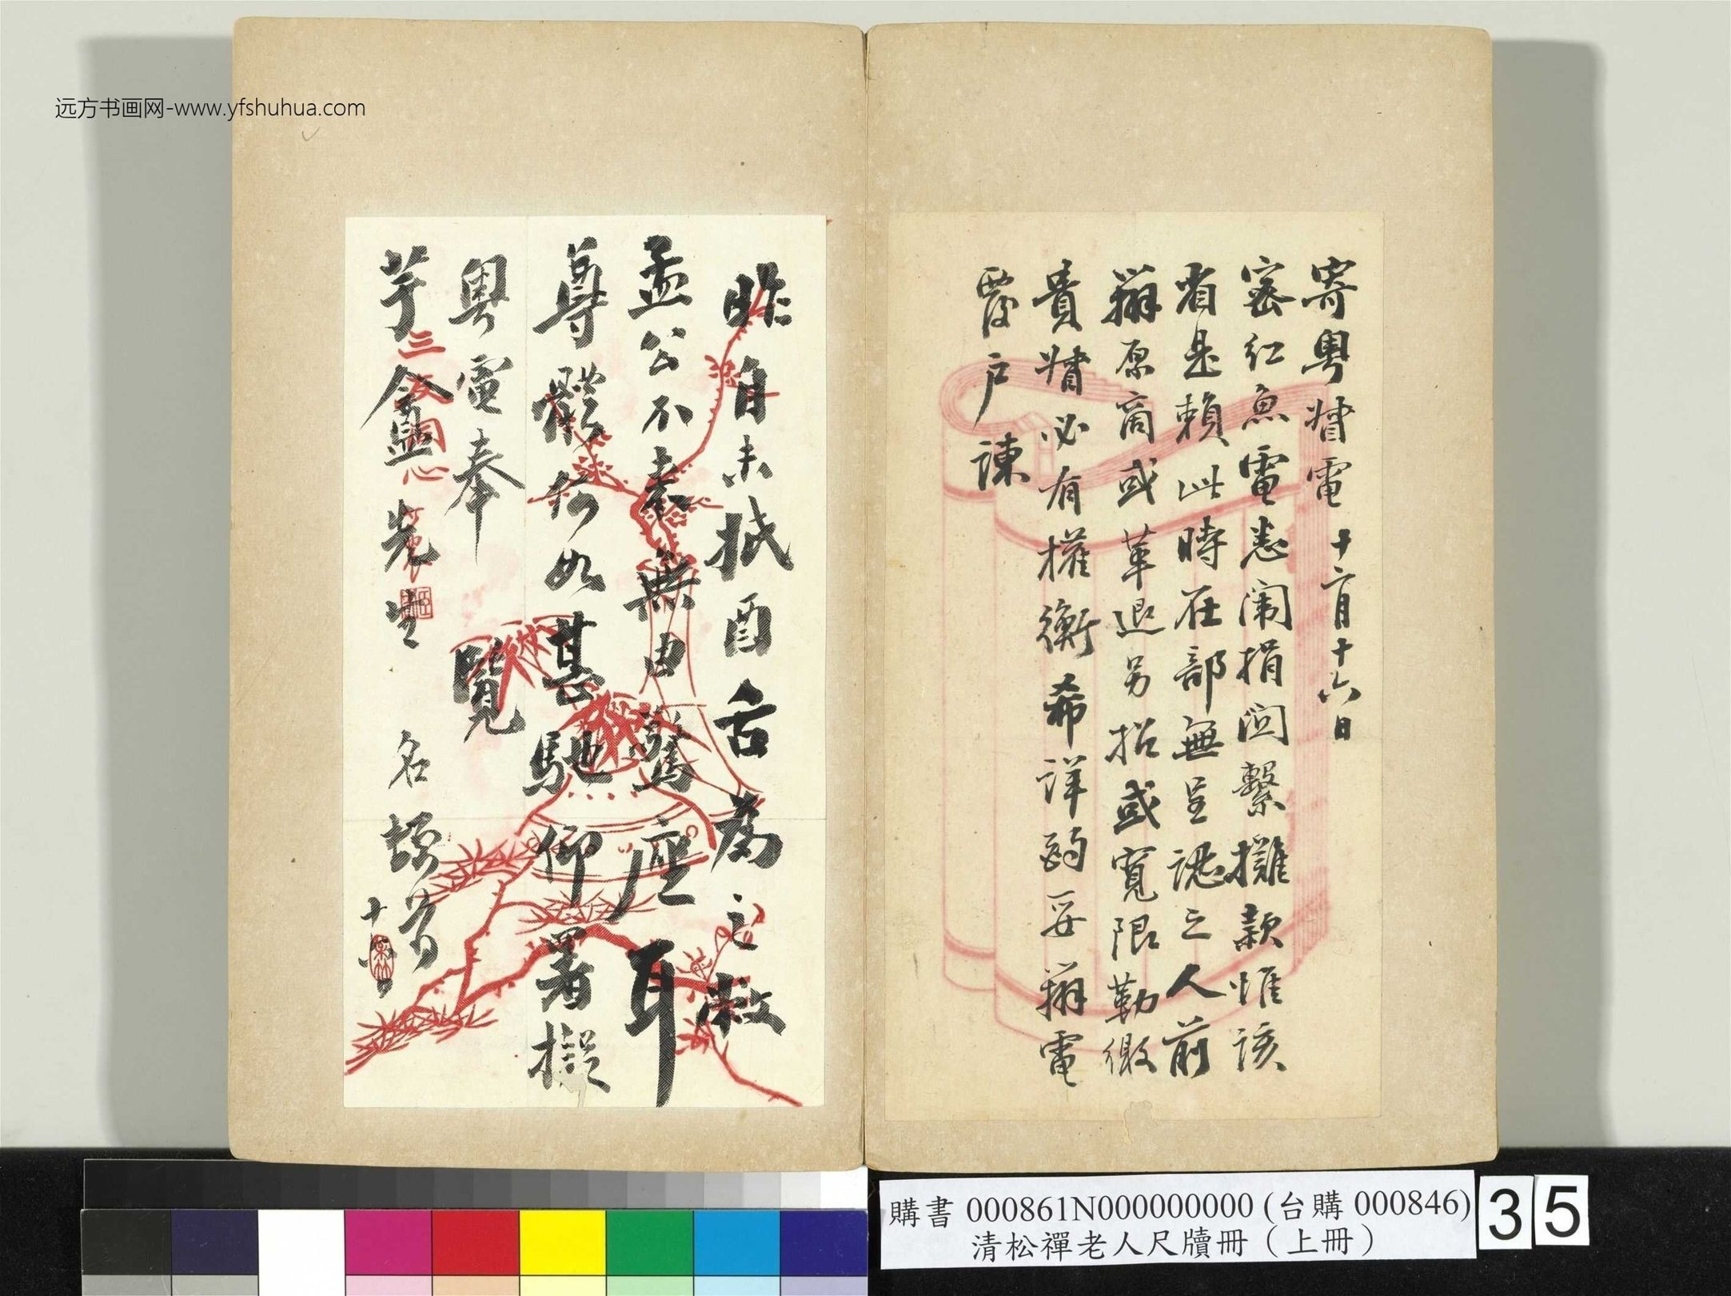 远方书画网-www.yfshuhua.com
寄粵督電 十二月十六日
密紅魚電悉闱捐関繫攤款惟該
省是賴此時在部無呈認之人前
辦原商或革退另招或寬限勒繳
貴督必有權衡希詳酌妥辦電
覆户諫
昨自未抵酉舌為之敝
孟公不素無由驚座耳
尊體何如甚馳仰署擬
粵電奉
覽
芋龕先生 名頓首
三友同心
購書 000861N000000000 (台購 000846)
清松禪老人尺牘冊（上冊）
35